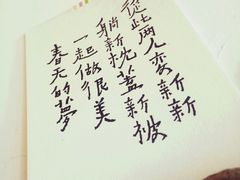 從此兩人變新新
躺新枕蓋新被
一起做很美
春天的夢